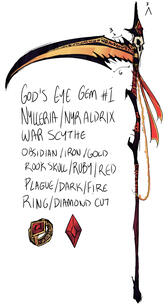 GOD'S EYE GEM #1
NYLLERIA/NYRALDRIX
WAR SCYTHE
OBSIDIAN/IRON/GOLD
ROOK SKULL/RUBY/RED
PLAGUE/DARK/FIRE
RING/DIAMOND CUT